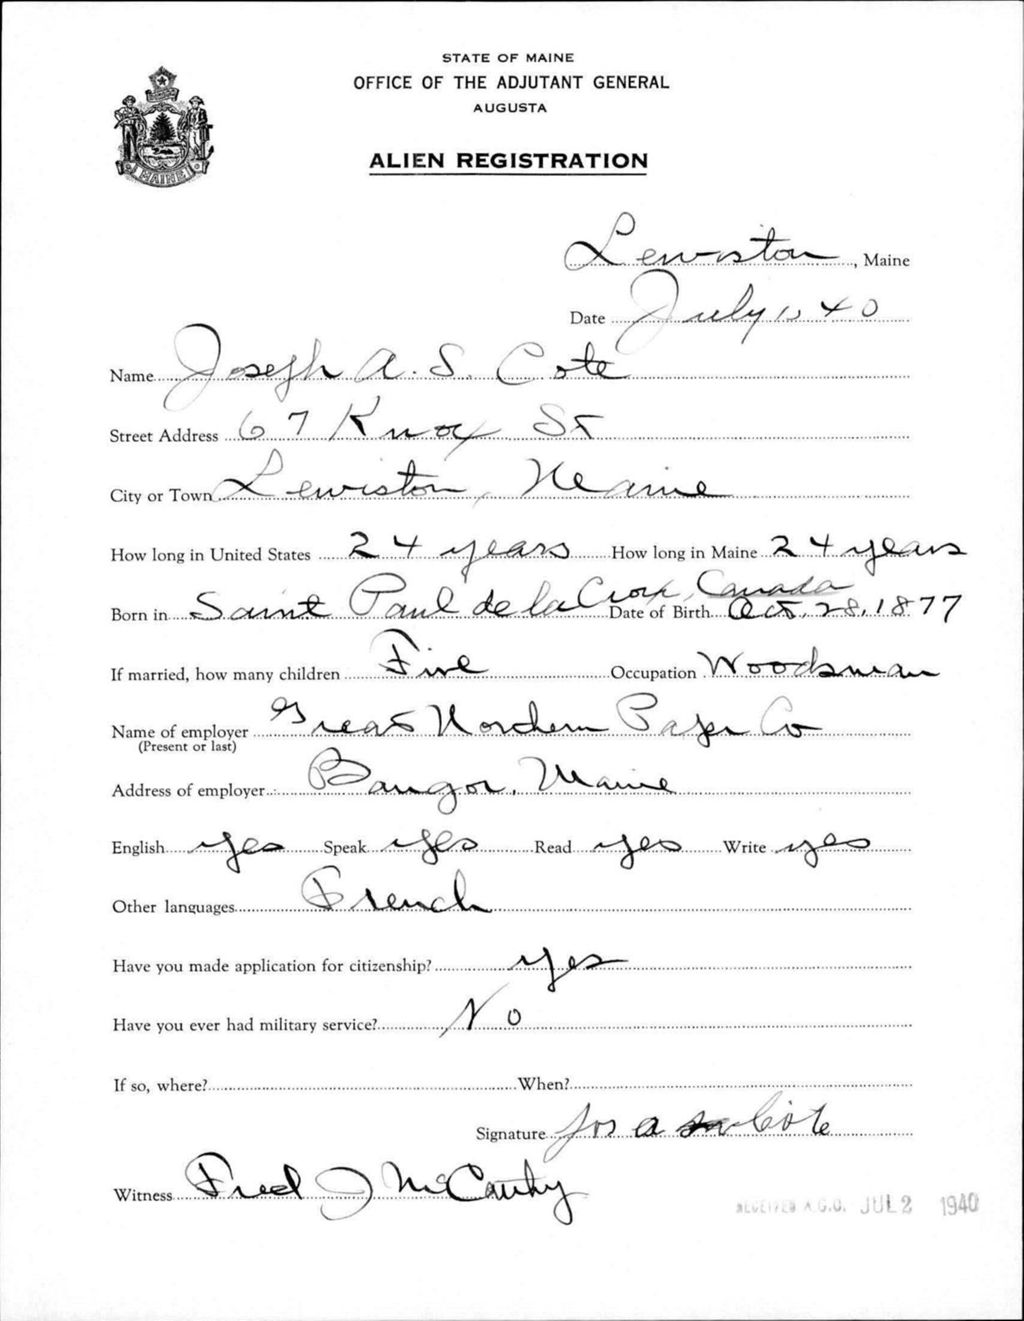 STATE OF MAINE
OFFICE OF THE ADJUTANT GENERAL
AUGUSTA
ALIEN REGISTRATION
MAINE
Lewiston, Maine
Date July 1, 40
Name Joseph A. S. Cote
Street Address 67 Knox St
City or Town Lewiston, Maine
How long in United States 24 years How long in Maine 24 years
Born in Saint Paul de la Croix, Canada Date of Birth Oct. 28, 1877
If married, how many children Five Occupation Woodsman
Name of employer Great Northern Paper Co
(Present or last)
Address of employer Bangor, Maine
English yes Speak yes Read yes Write yes
Other languages French
Have you made application for citizenship? yes
Have you ever had military service? No
If so, where? When?
Signature Jos a Cote
Witness Fred J McCarthy
RECEIVED A.G.O. JUL 2 1940